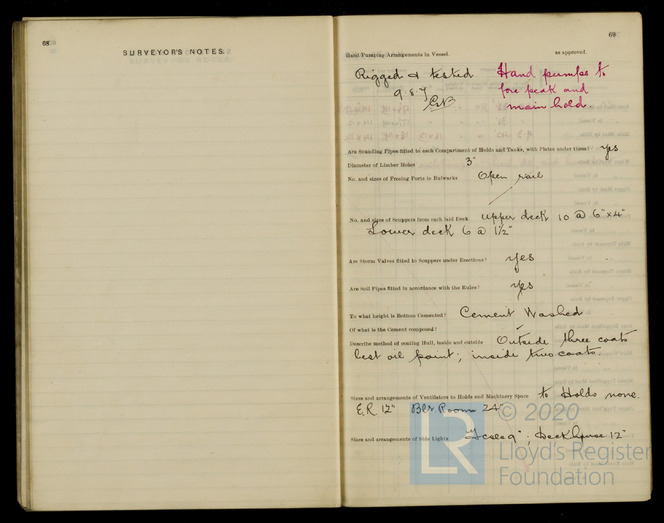 68
SURVEYOR'S NOTES.
69
Hand Pumping Arrangements in Vessel.
as approved.
Rigged & tested
9.8.7
Hand pumps to
fore peak and
main hold
Are Sounding Pipes fitted to each Compartment of Holds and Tanks, with Plates under them? yes
Diameter of Limber Holes 3"
No. and sizes of Freeing Ports in Bulwarks Open rail
No. and sizes of Scuppers from each laid Deck upper deck 10 @ 6"x4"
Lower deck 6 @ 1½"
Are Storm Valves fitted to Scuppers under Erections? yes
Are Soil Pipes fitted in accordance with the Rules? yes
To what height is Bottom Cemented? Cement Washed
Of what is the Cement composed?
Describe method of coating Hull, inside and outside Outside three coats
best oil paint; inside two coats.
Sizes and arrangements of Ventilators to Holds and Machinery Space to Holds none.
E.R. 12" Blr. Room 24"
Sizes and arrangements of Side Lights 9"; Deckhouse 12"
LR
© 2020
Lloyd's Register
Foundation